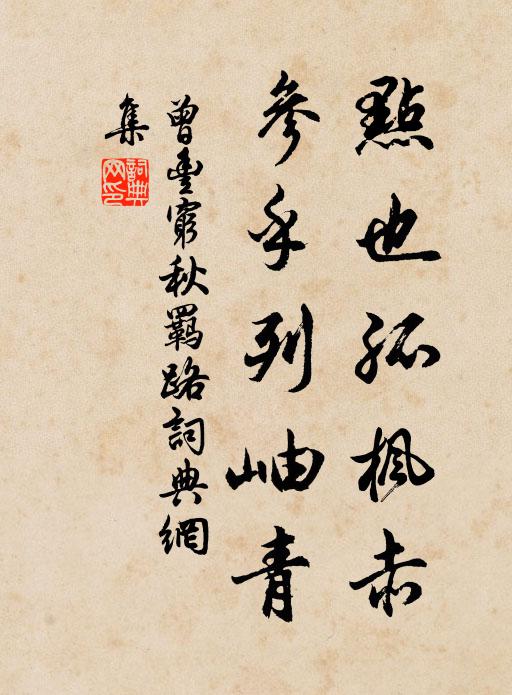 點也孤楓赤
參乎列岫青
曾豐窮秋羈路詞典網
集
詞典網印